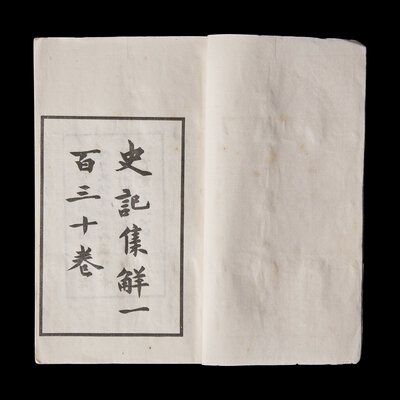 史記集觧一
百三十卷